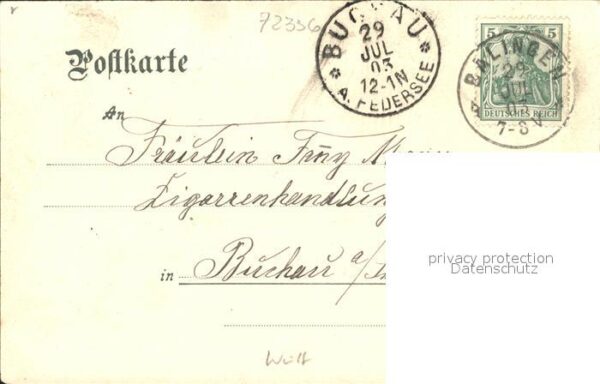 72356
BUCHAU
29
JUL
03
12-1N
A. FEDERSEE
5 5
DEUTSCHES REICH
BALINGEN
29
JUL
03
7-8V
Postkarte
An
Fräulein Fanny
Zigarrenhandlung
in Buchau a/
privacy protection
Datenschutz
Württ